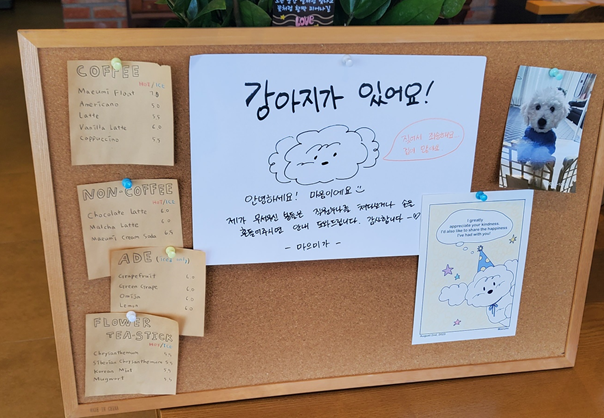 LOVE
COFFEE
HOT/ICE
Maeumi Float 7.5
Americano 5.0
Latte 5.5
Vanilla Latte 6.0
Cappuccino 5.5
NON-COFFEE
HOT/ICE
Chocolate Latte 6.0
Matcha Latte 6.0
Maeumi Cream Soda 6.5
ADE
Grapefruit 6.0
Green Grape 6.0
Omija 6.0
Lemon 6.0
FLOWER TEA-STICK
HOT/ICE
Chrysanthemum 5.5
Siberian Chrysanthemum 5.5
Korean Mint 5.5
Marigold 5.5
강아지가 있어요!
안녕하세요! 마음이에요
제가 무서우신 분들은
손을
흔들어주시면 안내 도와드립니다. 감사합니다
I greatly
appreciate your kindness.
I'd also like to share the happiness
I've had with you!